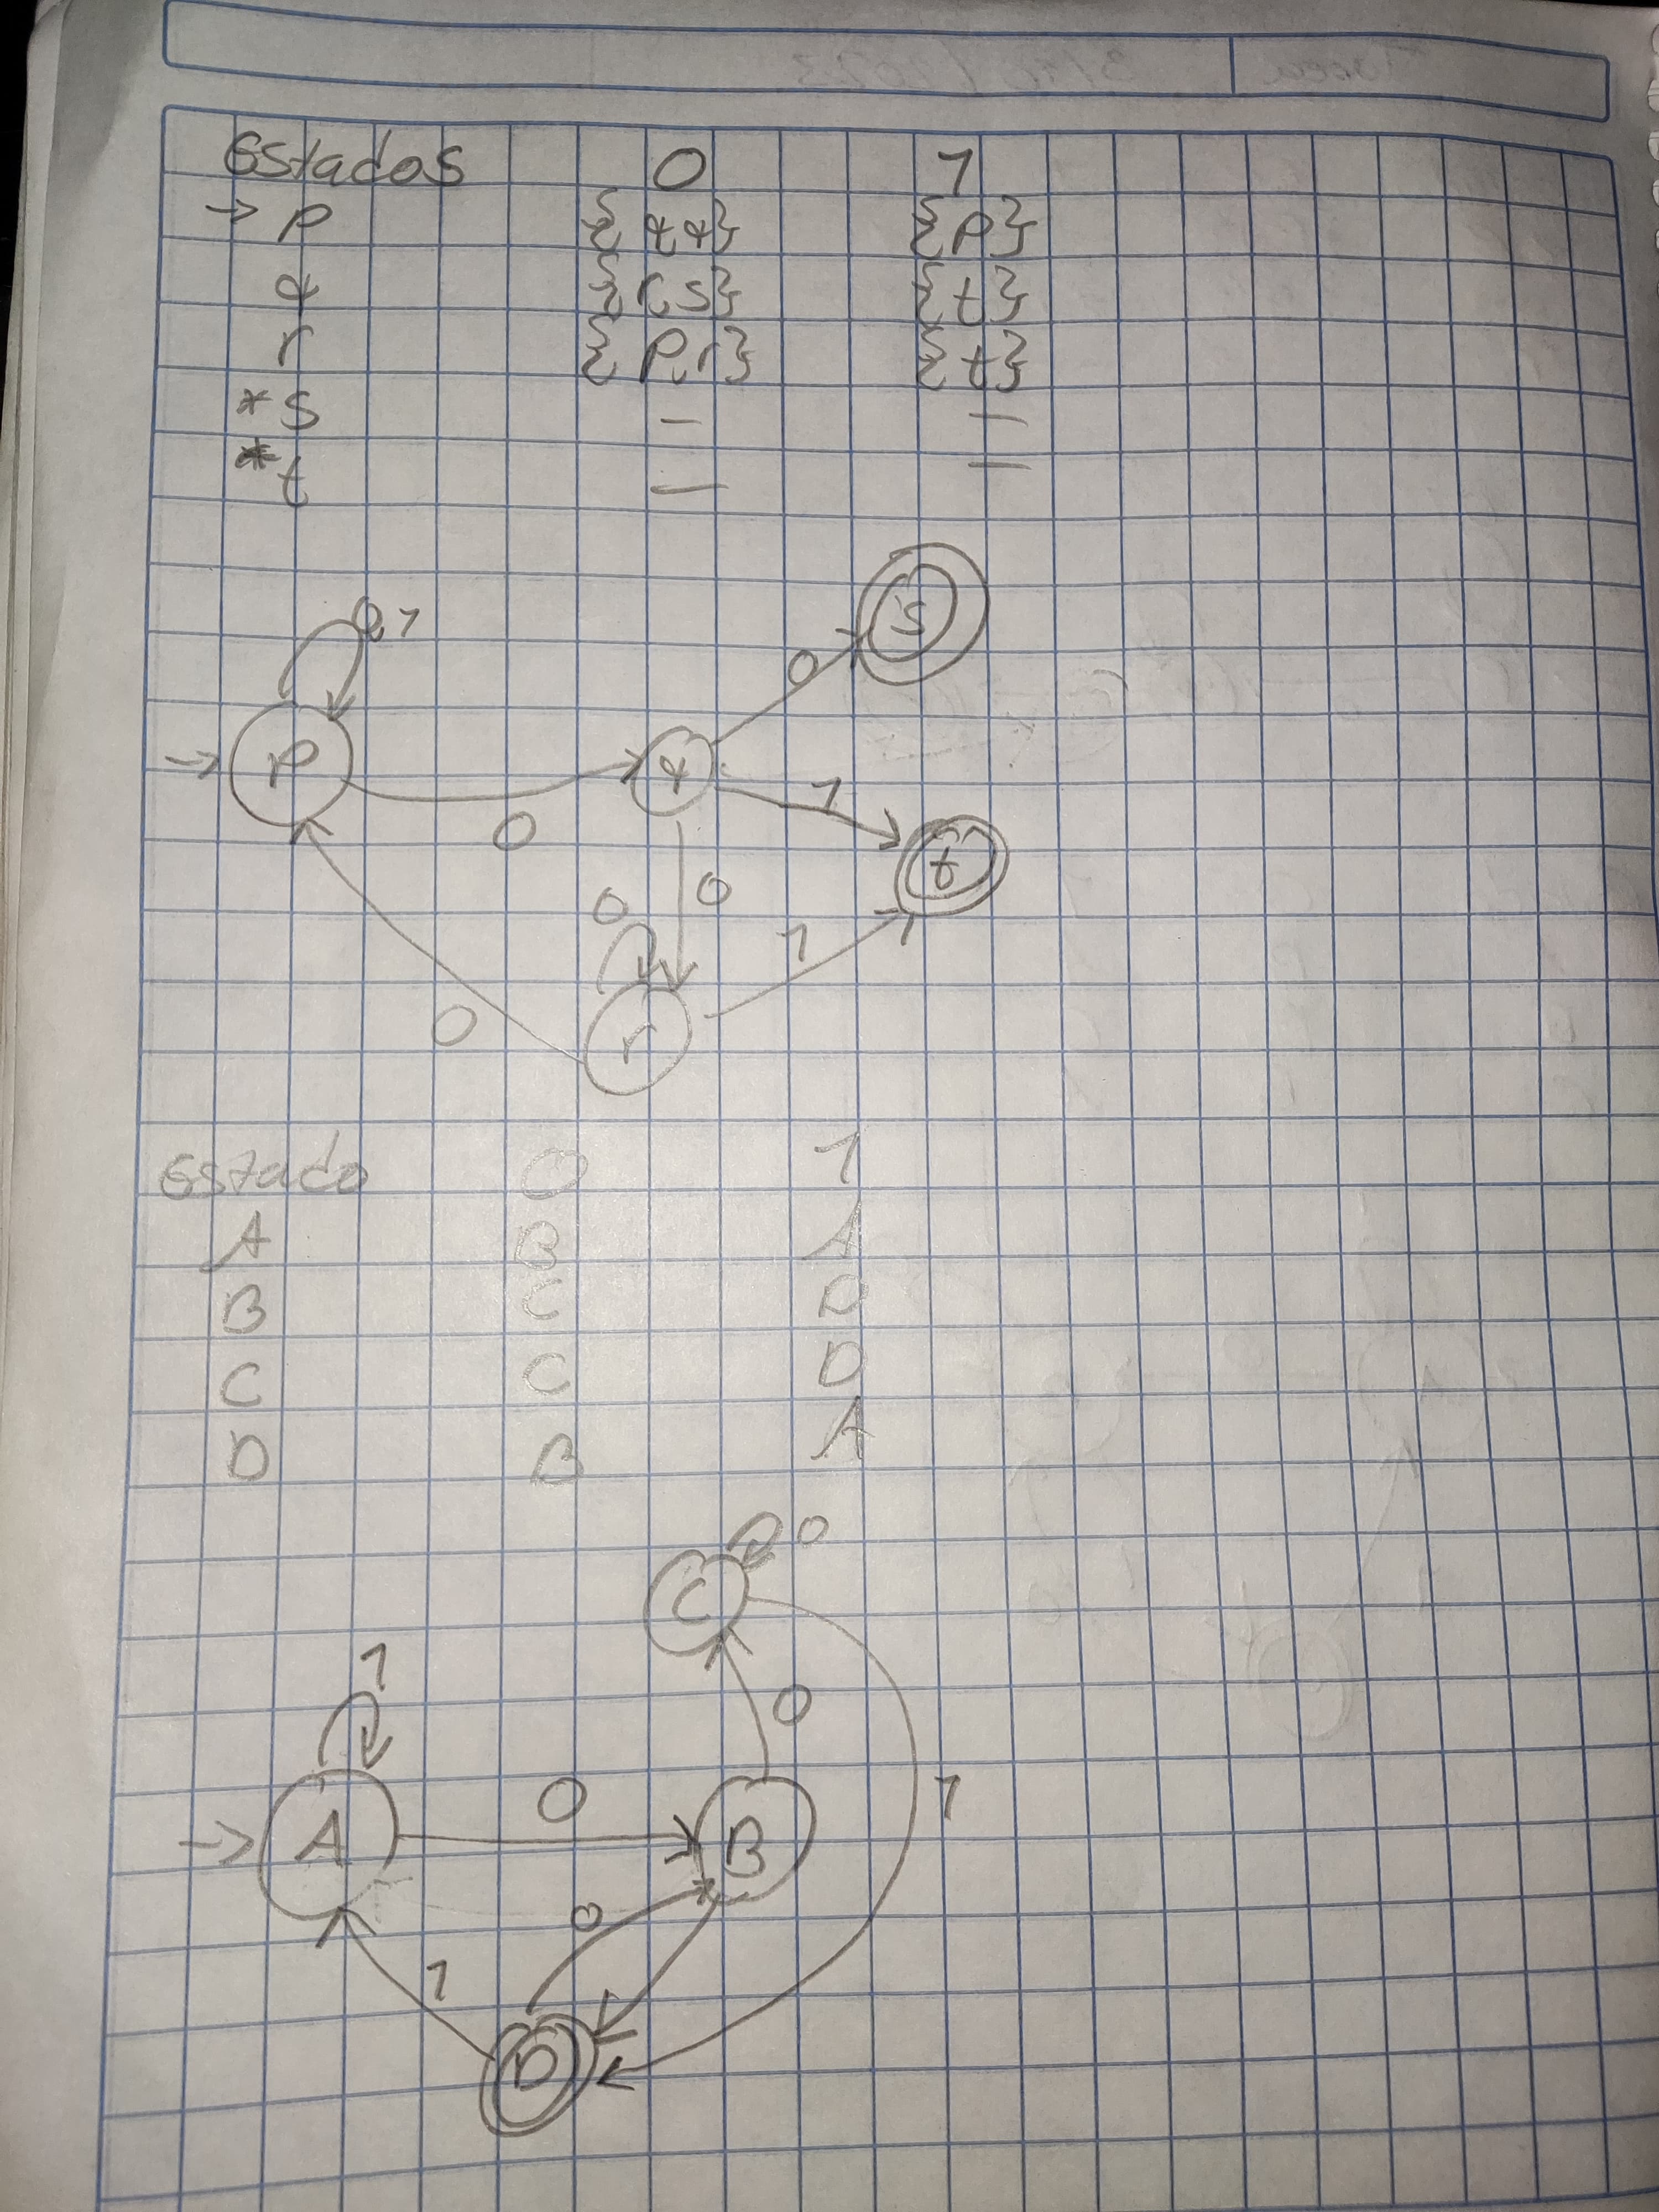 Estados 0 1
→ p {q,q} {p}
q {r,s} {t}
r {p,r} {t}
*s - -
*t - -
0,1
s
0
→ p
q
1
0
t
0
0
1
0
r
Estado 0 1
A B A
B C D
C C D
D B A
0
C
1
0
0
1
→ A
B
0
1
D